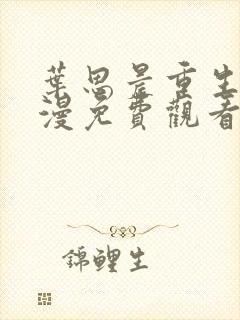 葉思晨重生
漫免費觀看
錦鯉生